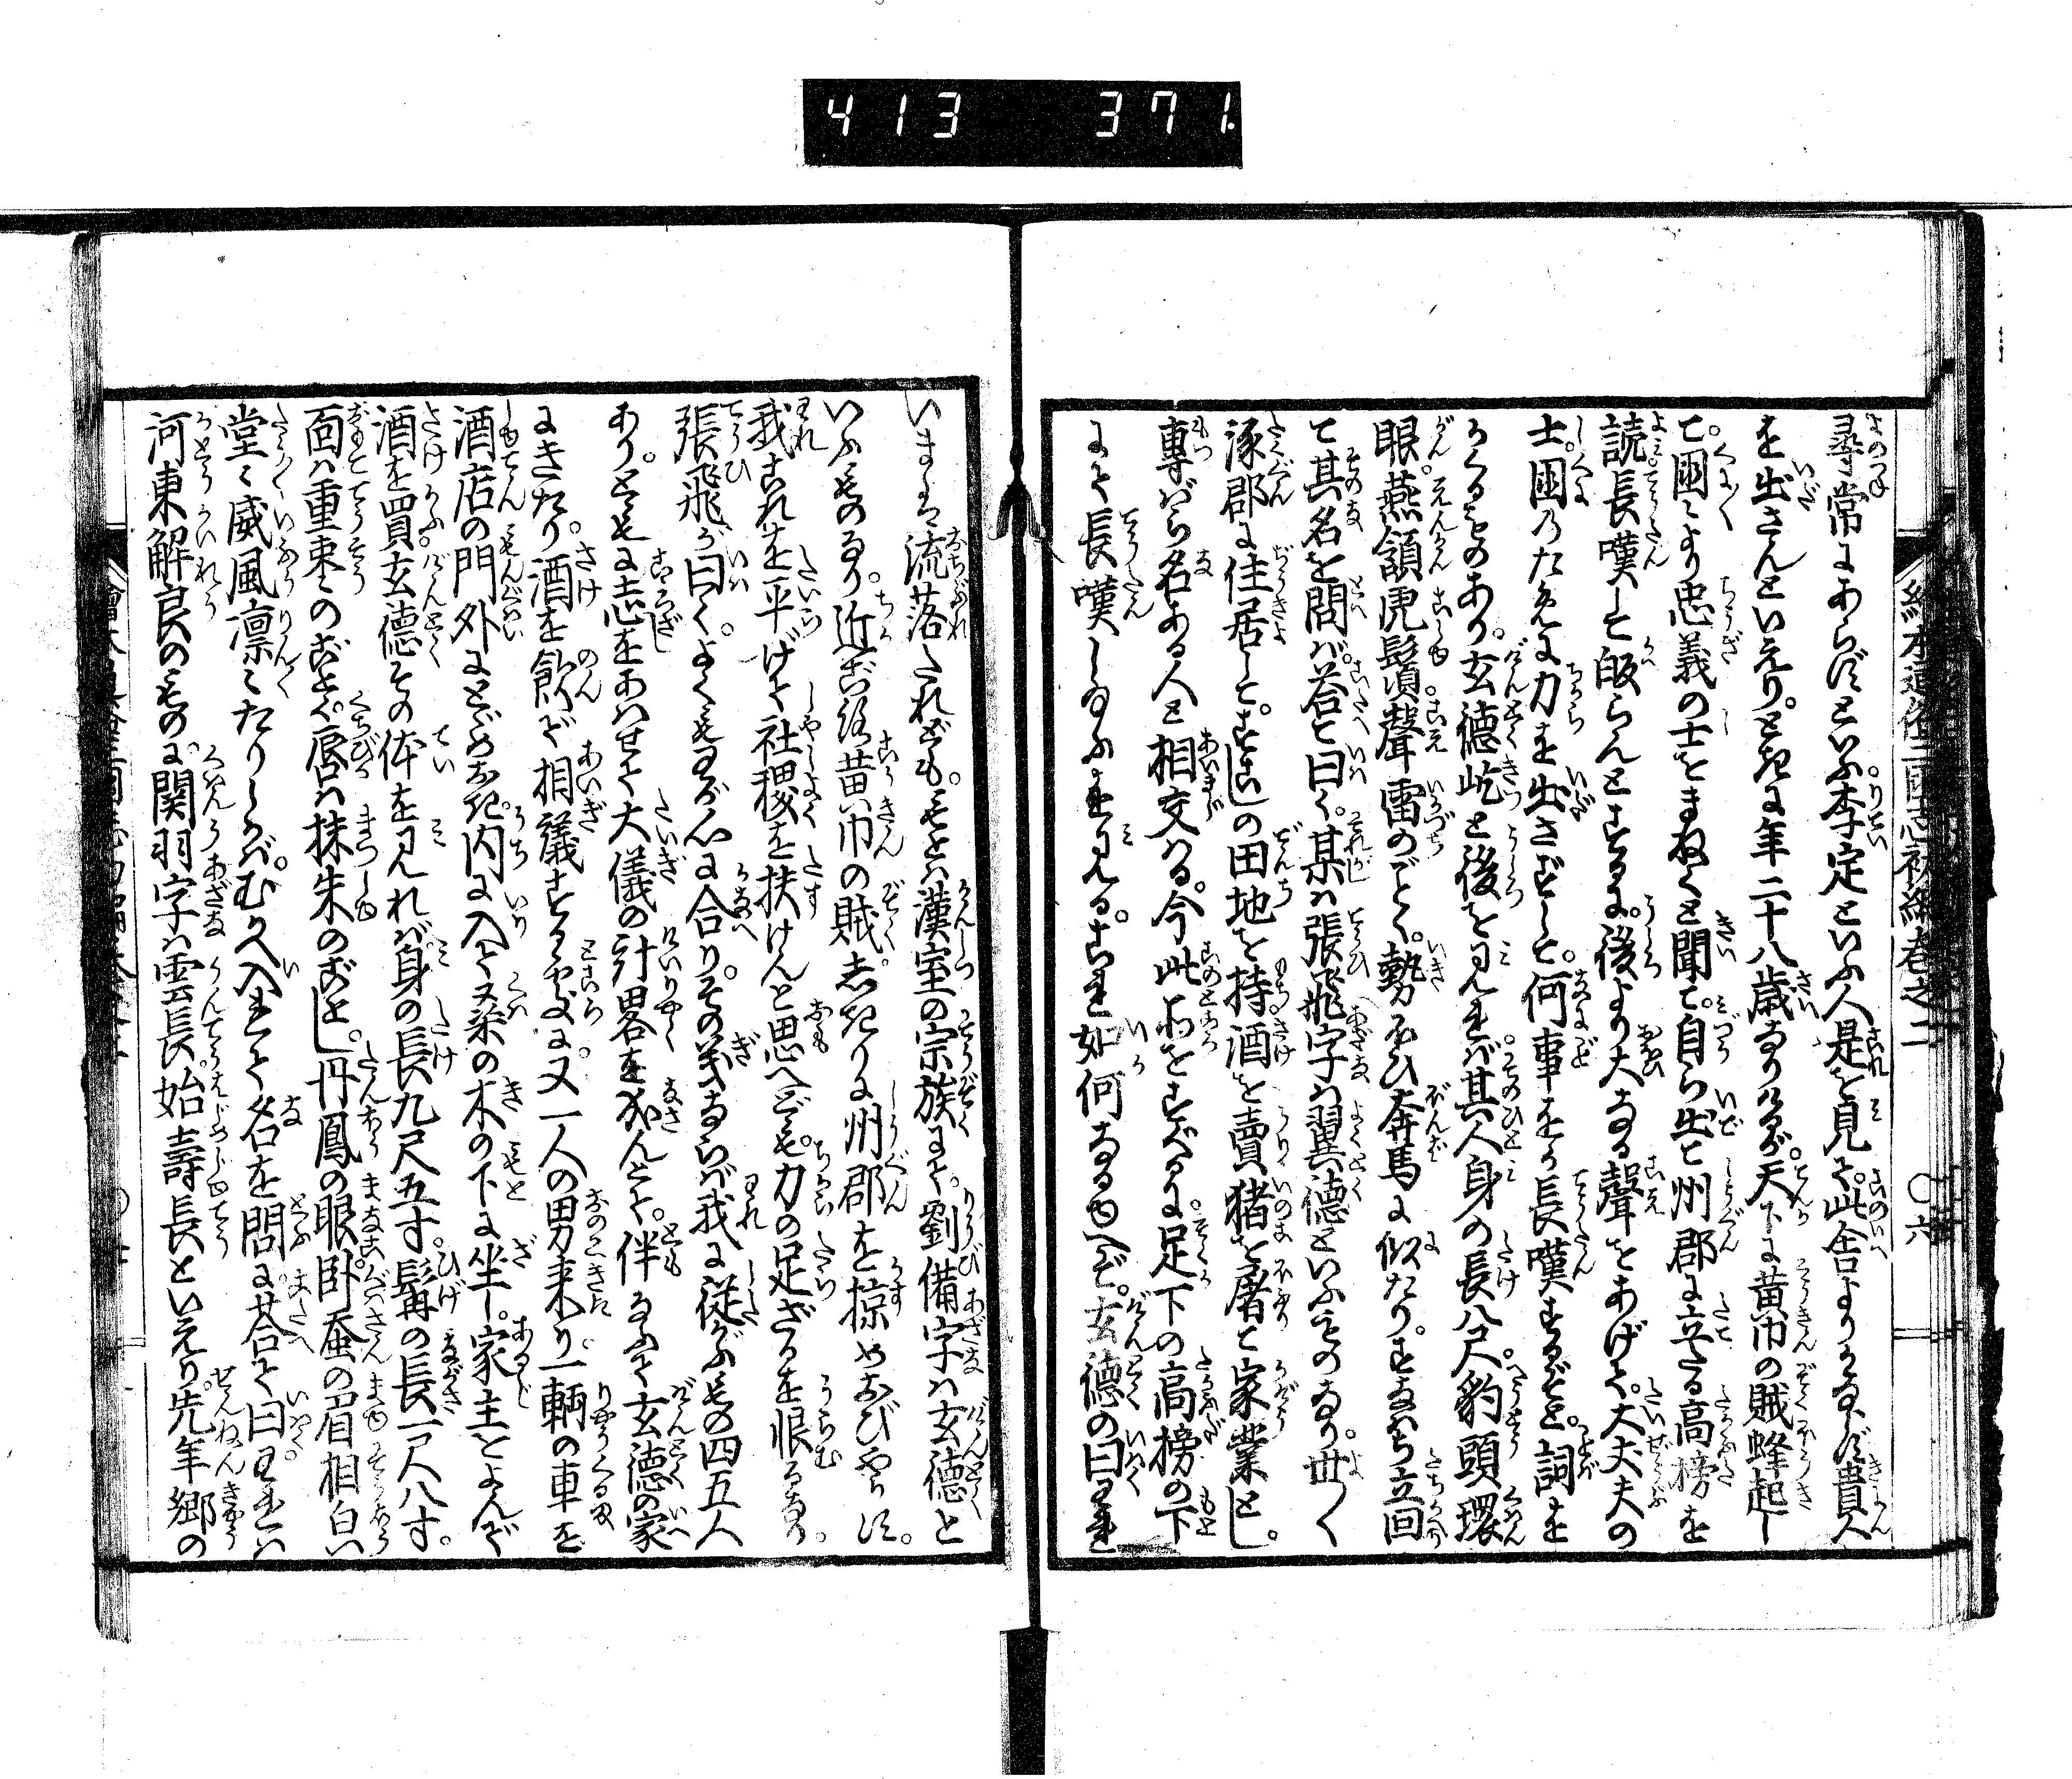 413 371.
絵本通俗三国志初編巻之二 ○六
尋常にあらずといふ李定といふ人是を見て此舎よりかならず貴人
を出さんといえりときに年二十八歳なりけるが天下に黄巾の賊蜂起し
て国々より忠義の士をまねくと聞て自ら出て州郡に立たる高榜を
読長嘆して皈らんとするに後より大なる聲をあげて大丈夫の
士国のために力を出さずして何事をか長嘆するぞと詞を
かくるものあり玄徳屹と後を見れば其人身の長八尺豹頭環
眼燕頷虎鬚聲雷のごとく勢ひ奔馬に似たりすなはち立回
て其名を問ば答て曰く某は張飛字は翼徳といふものなり世々
涿郡に住居してすこしの田地を持酒を賣猪を屠て家業とし
専ばら名ある人と相交はる今此所をすぐるに足下の高榜の下
にて長嘆しゐふを見るこれ如何なるゆへぞ玄徳の曰われ
いまこそ流落たれどももとは漢室の宗族にて劉備字は玄徳と
いふものなり近ごろ黄巾の賊しきりに州郡を掠めおびやかす
我これを平げて社稷を扶けんと思へども力の足ざるを恨るなり
張飛が曰くよくもわが心に合りその義ならば我に従がふもの四五人
ありともに志をあはせて大儀の計畧を成んとて伴なふて玄徳の家
にきたり酒を飲で相議するところに又一人の男来り一輌の車を
酒店の門外にとどめおき内に入て桑の木の下に坐し家主とよんで
酒を買玄徳その体を見れば身の長九尺五寸髯の長一尺八寸
面は重棗のごとく唇は抹朱のごとし丹鳳の眼臥蚕の眉相白い
堂々威風凛々たりしかばむかへ入れて名を問に答て曰われは
河東解良のものに関羽字は雲長始壽長といえり先年郷の